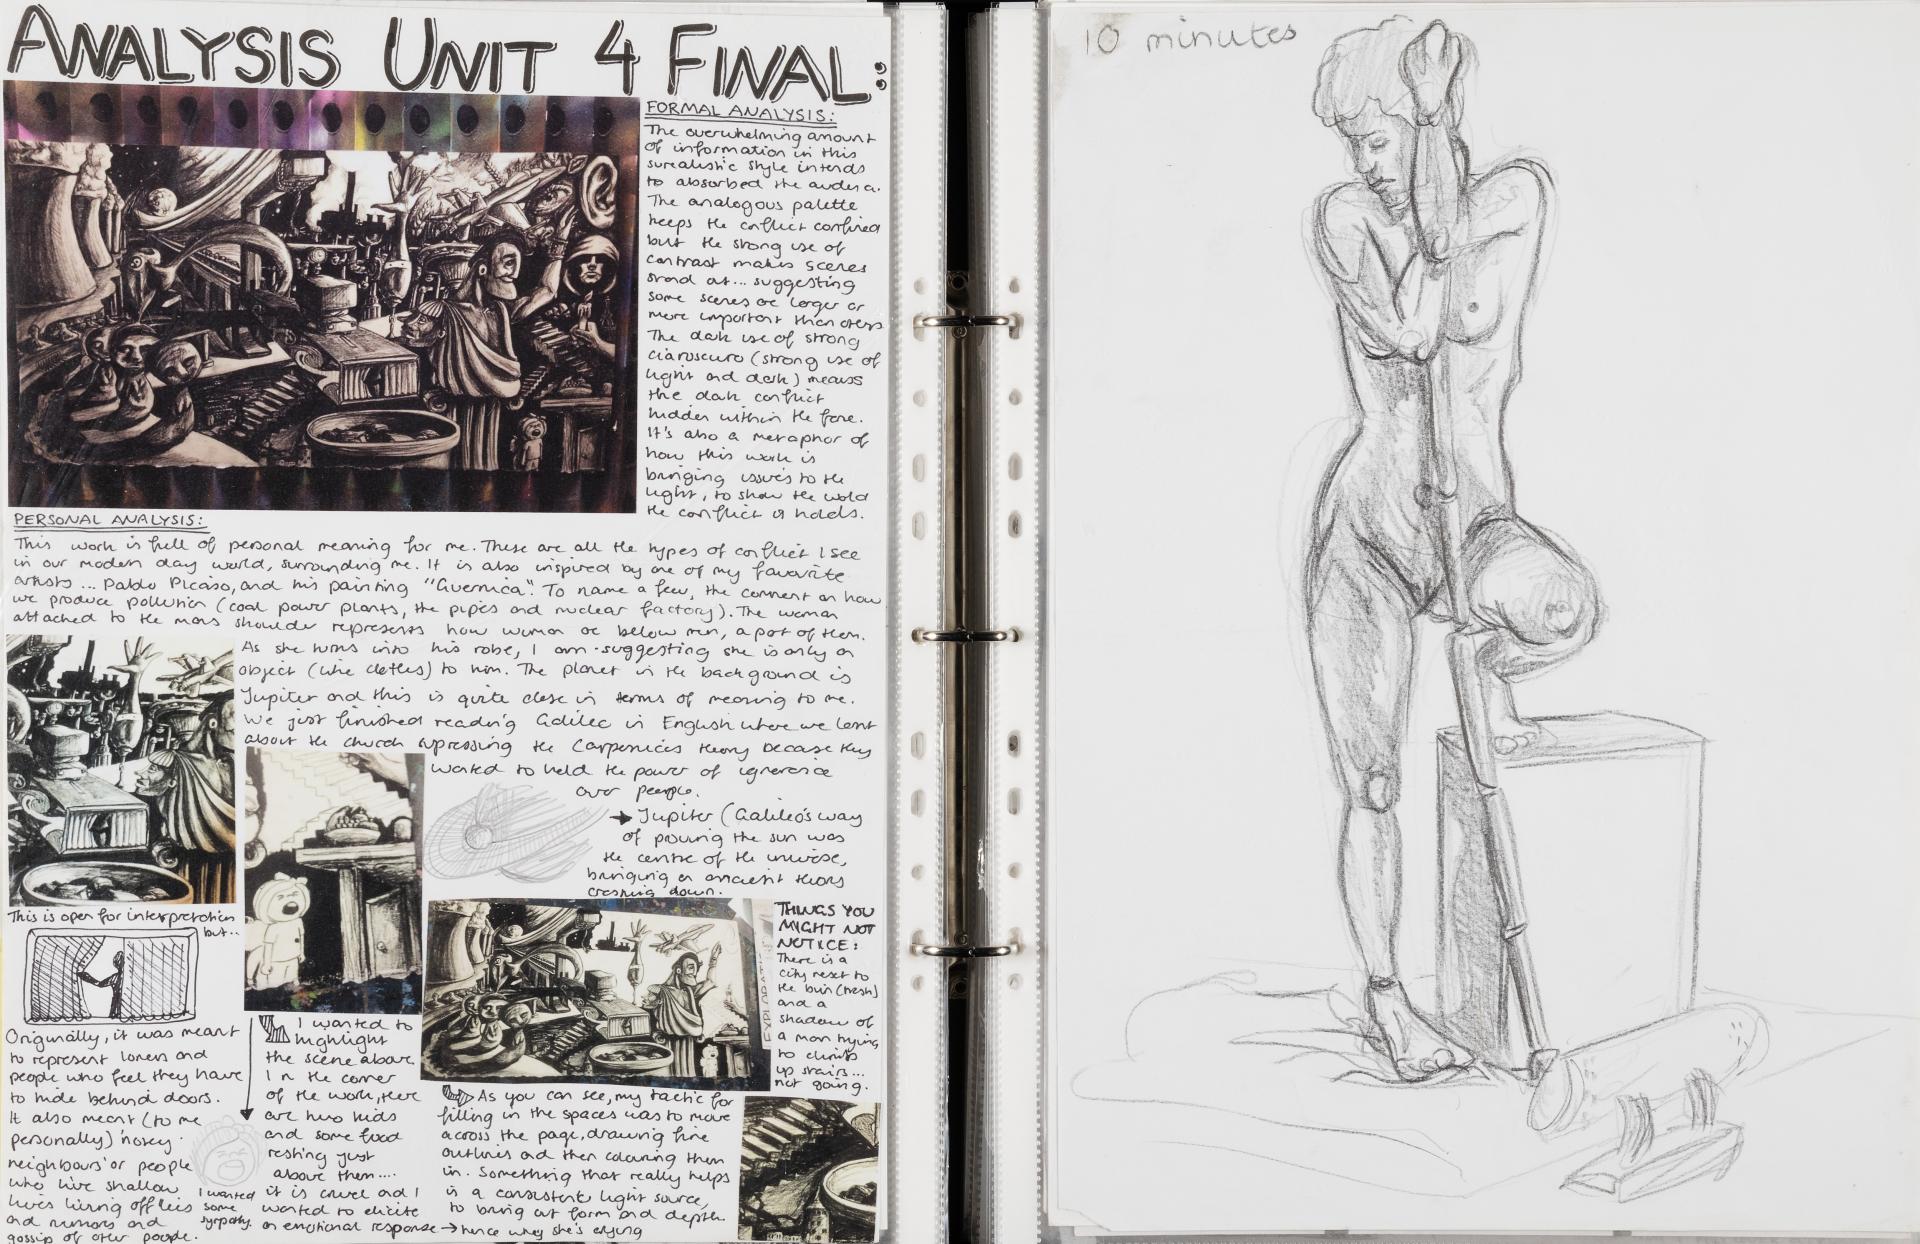 ANALYSIS UNIT 4 FINAL:
FORMAL ANALYSIS:
The overwhelming amount
of information in this
surealistic style intends
to absorbed the
The analogous palette
keeps the conflict confined
but the strong use of
contrast makes scenes
stand out... suggesting
some scenes are larger or
more important than others
The dark use of strong
ciaroscuro (strong use of
light and dark) means
the dark conflict
hidden within the
It's also a metaphor of
how this work is
bringing issues to the
light, to show the world
the conflict it holds.
PERSONAL ANALYSIS:
This work is full of personal meaning for me. These are all the types of conflict I see
in our modern day world, surrounding me. It is also inspired by one of my favorite
artists... Pablo Picaso, and his painting "Guernica". To name a few, the comment on how
we produce pollution (coal power plants, the pipes and nuclear factory). The woman
attached to the mans shoulder represents how woman are below men, a part of them.
As she turns into his robe, I am suggesting she is only an
object (like clothes) to him. The planet in the background is
Jupiter and this is quite close in terms of meaning to me.
We just finished reading Galileo in English where we learnt
about the church supressing the theory because they
wanted to held the power of ignorance
over people.
→ Jupiter (Galileo's way
of proving the sun was
the centre of the universe,
bringing an ancient theory
crashing down.
This is open for interpretation
but..
Originally, it was meant
to represent loners and
people who feel they have
to hide behind doors.
It also meant (to me
personally) 'nosey
neighbours' or people
who live shallow
lives living off lies
and rumors and
gossip of other people.
I wanted
some
sympathy.
I wanted to
highlight
the scene above.
In the corner
of the work, there
are two kids
and some food
resting just
above them....
it is cruel and I
wanted to elicite
an emotional response → hence why she's crying
THINGS YOU
MIGHT NOT
NOTICE:
There is a
city next to
the bin (trash)
and a
shadow of
a man trying
to climb
up stairs...
not going.
As you can see, my tactic for
filling in the spaces was to move
across the page, drawing fine
outlines and then colouring them
in. Something that really helps
is a consistent light source,
to bring out form and depth.
10 minutes